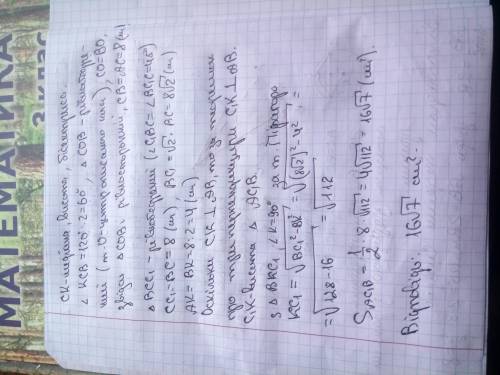 МАТЕМАТИКА
3 КЛАС
CK-медіана висота, бісектриса.
∠KCB = 120°:2 = 60°, △COB - рівнобедре-
ний (т.О-центр описаного кола), CO=BO,
звідси △COB - рівносторонній, CB=AC=8(см)
△BCC₁ - рівнобедрений (∠C₁BC=∠BC₁C=45)
CC₁=BC=8(см), BC₁=√2·AC=8√2(см)
AK=BK=8:2=4(см)
Оскільки CK⊥AB, то за теоремою
про три перпендикуляри C₁K⊥AB.
C₁K-висота △AC₁B.
З △BKC₁ ∠K=90° за т. Піфагора
KC₁=√BC₁²-BK²=√(8√2)²-4²=
=√128-16=√112
S AC₁B=1/2·8·√112=4√112=16√7(см²).
Відповідь: 16√7 см².